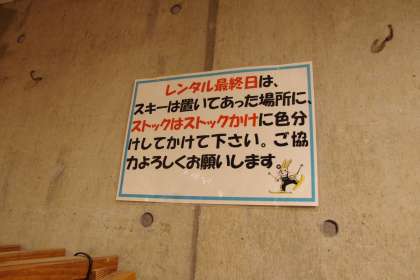 レンタル最終日は、
スキーは置いてあった場所に、
ストックはストックかけに色分
けしてかけて下さい。ご協
力よろしくお願いします。